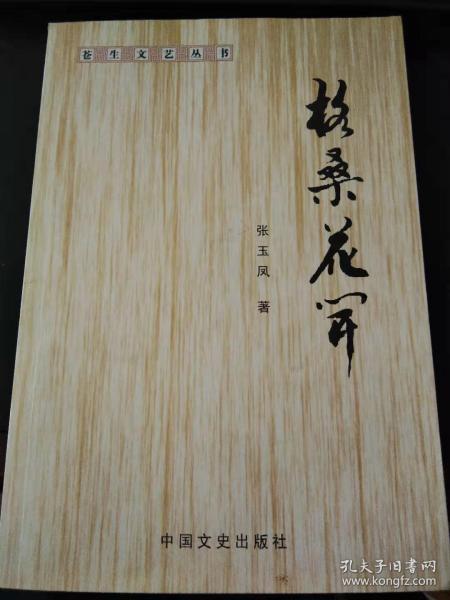 苍生文艺丛书
格桑花开
张玉凤 著
中国文史出版社
孔夫子旧书网
www.kongfz.com